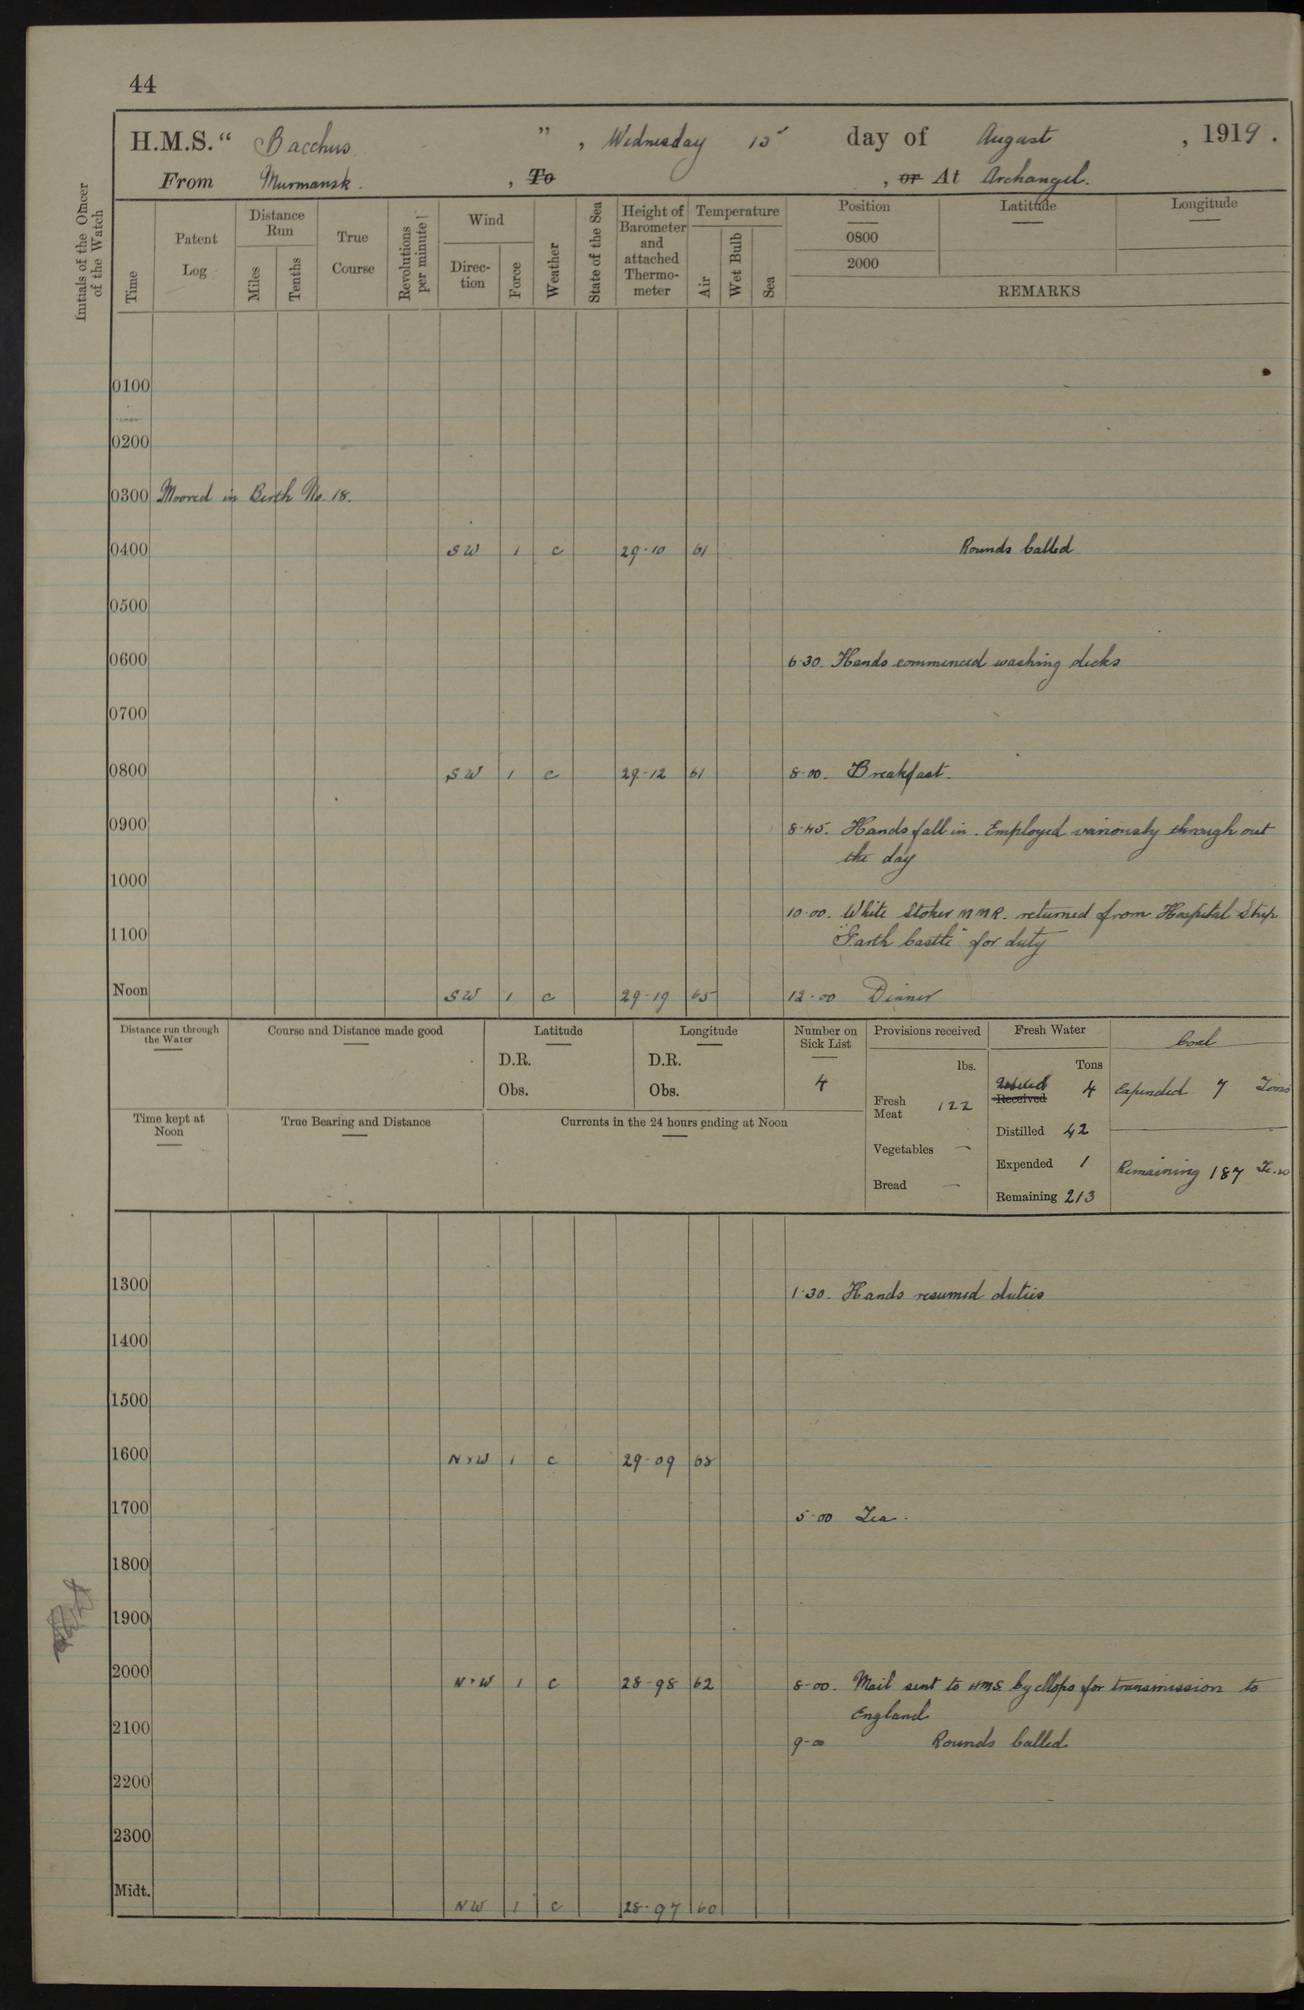 44
H.M.S. “ Bacchus ” , Wednesday 13 day of August , 1919 .
From Murmansk . , To , or At Archangel.
Initials of the Officer of the Watch
Time
Patent Log
Distance Run
Miles
Tenths
True Course
Revolutions per minute
Wind
Direc-tion
Force
Weather
State of the Sea
Height of Barometer and attached Thermo-meter
Temperature
Air
Wet Bulb
Sea
Position Latitude Longitude
0800
2000
REMARKS
0100
0200
0300 Moored in Berth No. 18.
0400 SW 1 c 29-10 61 Rounds Called
0500
0600 6.30. Hands commenced washing decks
0700
0800 SW 1 c 29-12 61 8-00. Breakfast.
0900 8-45. Hands fall in. Employed variously through out
the day
1000
10-00. White Stoker MMR. returned from Hospital Ship
1100 "Garth Castle" for duty
Noon SW 1 c 29-19 65 12-00 Dinner
Distance run through the Water
Course and Distance made good
Latitude
D.R.
Obs.
Longitude
D.R.
Obs.
Number on Sick List
4
Provisions received
lbs.
Fresh Meat 122
Vegetables —
Bread —
Fresh Water
Tons
Received 4
Distilled 42
Expended 1
Remaining 213
Coal
Expended 7 Tons
Remaining 187 Tons
Time kept at Noon
True Bearing and Distance
Currents in the 24 hours ending at Noon
1300 1.30. Hands resumed duties
1400
1500
1600 N x W 1 c 29-09 68
1700 5-00 Tea.
1800
1900
2000 N x W 1 c 28-98 62 8-00. Mail sent to HMS Cyclops for transmission to
England
2100 9-00 Rounds Called
2200
2300
Midt. NW 1 c 28-97 60